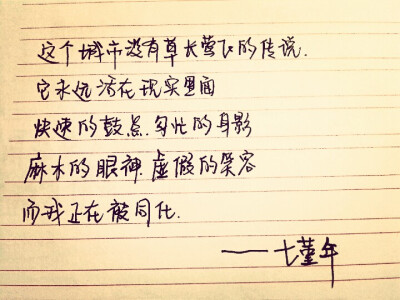 这个城市没有草长莺飞的传说.
它永远活在现实里面
快速的鼓点.匆忙的身影
麻木的眼神.虚假的笑容
而我正在被同化.
——七堇年